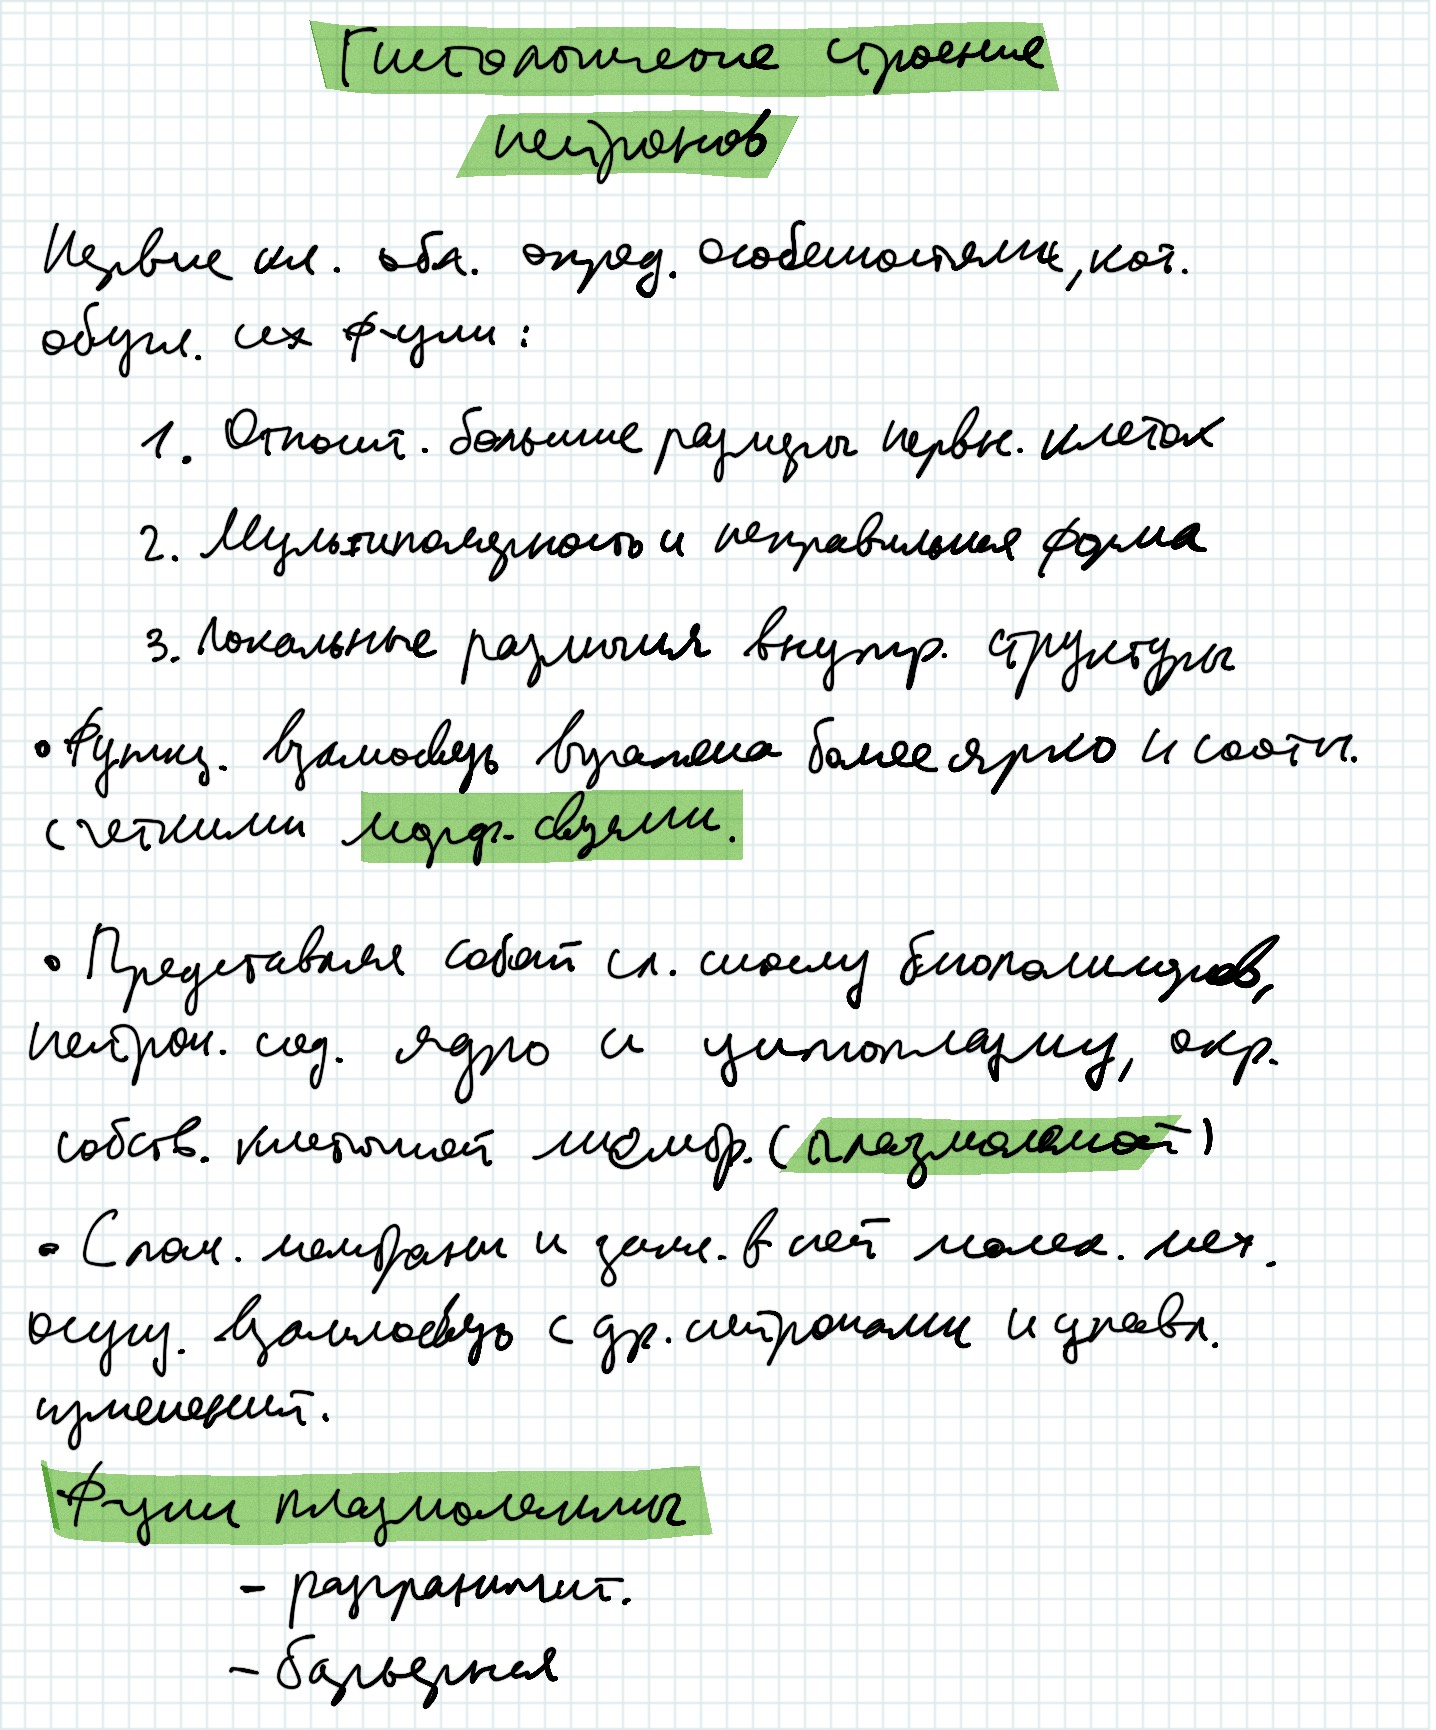 Гистологическое строение
нейронов
Нервные кл. обл. опред. особенностями, кот.
обусл. их ф-ции:
1. Относит. большие размеры нервн. клеток
2. Мультиполярность и неправильная форма
3. Локальные различия внутр. структуры
• Функц. взаимосвязь выражена более ярко и соотн.
с четкими морф. связями.
• Представляя собой сл. систему биополимеров,
нейрон. сод. ядро и цитоплазму, окр.
собств. клеточной мембр. (плазмолемой)
• С пом. мембраны и закл. в ней молек. мех.
осущ. взаимосвязь с др. нейронами и управл.
изменений.
Ф-ции плазмолеммы
- разграничит.
- барьерная